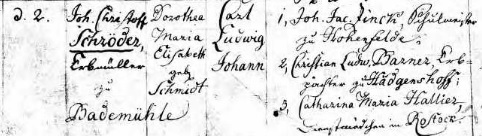 d. 2.
Joh. Christoff
Schröder,
Erbmüller
zu
Bademühle
Dorothea
Maria
Elisabeth
geb.
Schmidt
Carl
Ludwig
Johann
1, Joh. Jac. Finck, Schulmeister
zu Hohenfelde.
2, Christian Ludw. Barner, Erb-
pachter zu Hädgenshoff;
3, Catharina Maria Hallier,
Dienstmädchen in Rostock.